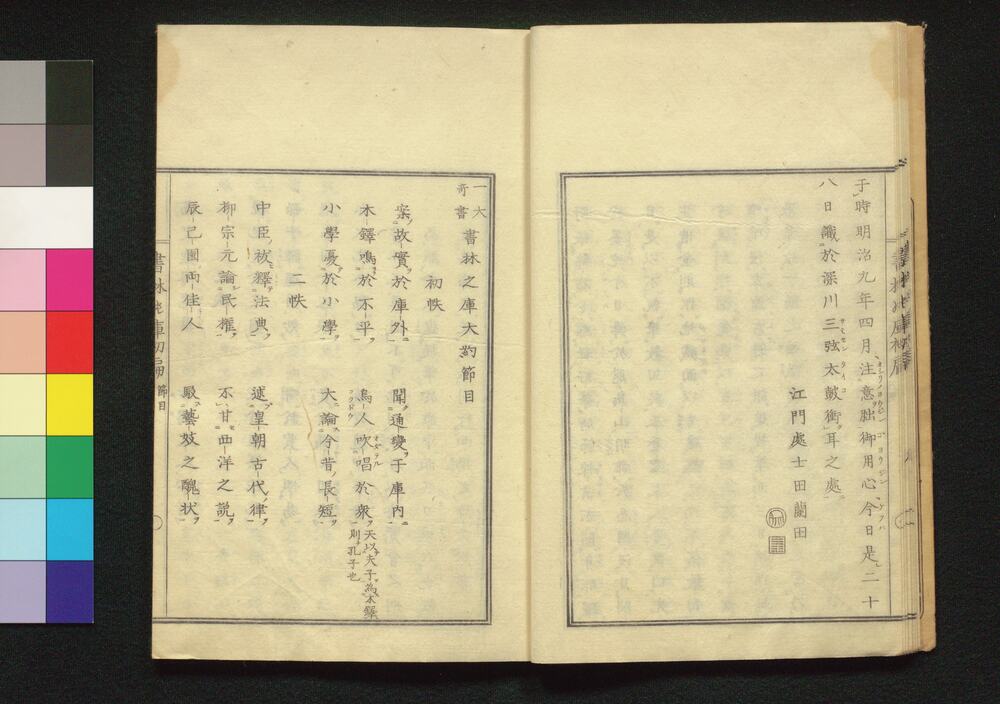 于時明治九年四月注意朏御用心今日是二十
八日識於深川三弦太皷衝耳之處
江門處士田蘭田
一大奇書
書林之庫大約節目
初帙
案故實於庫外 聞通變于庫内
木鐸鳴於不平 爲人吹唱於衆 天以夫子爲木鐸則孔子也
小學憂於小學 大論今昔長短
二帙
中臣祓釋法典 述皇朝古代律
柳宗元論民權 不甘西洋之説
辰己園両佳人 毆藝妓之醜状
書林之庫初編 節目